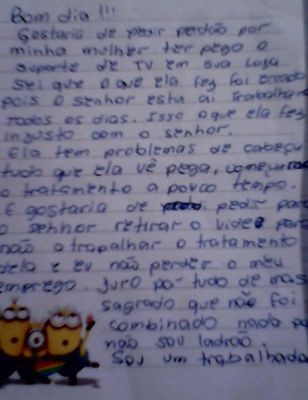 Bom dia !!!
Gostaria de pedir perdão por
minha mulher ter pego o
suporte de TV em sua loja
sei que o que ela fez foi errado
pois o senhor esta ai Trabalhan
Todos os dias. Isso o que ela fez
injusto com o senhor.
Ela tem problemas de cabeça
tudo que ela vê pega, começando
o tratamento a pouco tempo.
E gostaria de pedir para
o senhor retirar o video para
não atrapalhar o tratamento
dela e eu não perder o meu
emprego. Juro por tudo de mais
sagrado que não foi
combinado nada po
não sou ladrão.
Sou um trabalhado